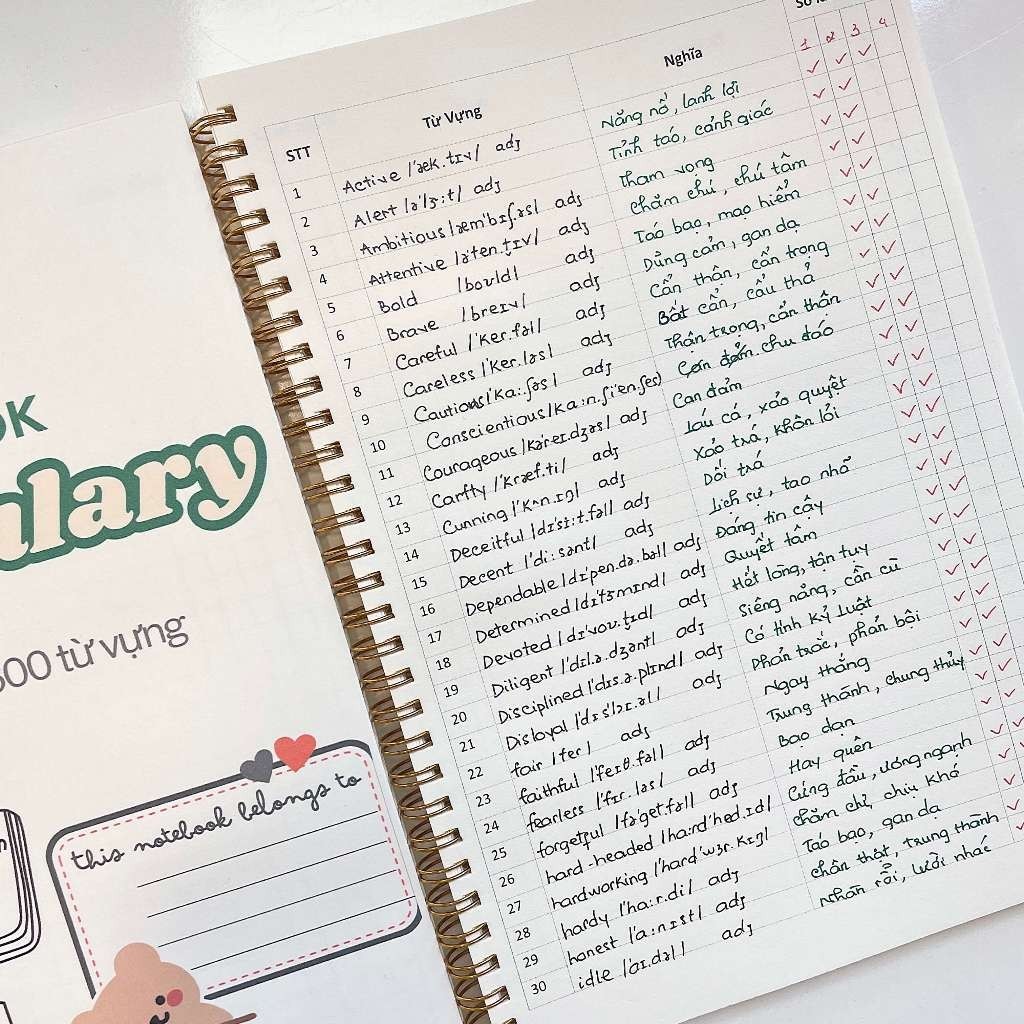 OK
ulary
500 từ vựng
this notebook belongs to
STT Từ Vựng Nghĩa
1 2 3 4
1 Active /'æk.tɪv/ adj Năng nổ, lanh lợi
2 Alert /ə'lɜ:t/ adj Tỉnh táo, cảnh giác
3 Ambitious /æm'bɪʃ.əs/ adj Tham vọng
4 Attentive /ə'ten.t̬ɪv/ adj chăm chú, chú tâm
5 Bold /boʊld/ adj Táo bạo, mạo hiểm
6 Brave /breɪv/ adj Dũng cảm, gan dạ
7 Careful /'ker.fəl/ adj Cẩn thận, cẩn trọng
8 Careless /'ker.ləs/ adj Bất cẩn, cẩu thả
9 Cautious /'ka:.ʃəs/ adj Thận trọng, cẩn thận
10 Conscientious /ka:n.ʃi'en.ʃəs/ chu đáo
11 Courageous /kə'reɪ.dʒəs/ adj Can đảm
12 Carfty /'kræf.ti/ adj láu cá, xảo quyệt
13 Cunning /'kʌn.ɪŋ/ adj Xảo trá, khôn lỏi
14 Deceitful /dɪ'si:t.fəl/ adj Dối trá
15 Decent /'di:sənt/ adj Lịch sự, tao nhã
16 Dependable /dɪ'pen.də.bəl/ adj Đáng tin cậy
17 Determined /dɪ'tɜmɪnd/ adj Quyết tâm
18 Devoted /dɪ'voʊ.t̬ɪd/ adj Hết lòng, tận tụy
19 Diligent /'dɪl.ə.dʒənt/ adj Siêng năng, cần cù
20 Disciplined /'dɪs.ə.plɪnd/ adj Có tính kỷ luật
21 Disloyal /'dɪs'lɔɪ.əl/ adj Phản trắc, phản bội
22 fair /fer/ adj Ngay thẳng
23 faithful /'feɪθ.fəl/ adj Trung thành, chung thủy
24 fearless /'fɪr.ləs/ adj Bạo dạn
25 forgetful /fə'get.fəl/ adj Hay quên
26 hard-headed /ha:rd'hed.ɪd/ Cứng đầu, ương ngạnh
27 hardworking /'hard'wɜr.kɪŋ/ chăm chỉ, chịu khó
28 hardy /'ha:r.di/ adj Táo bạo, gan dạ
29 honest /'a:nɪst/ adj chân thật, trung thành
30 idle /'aɪ.dəl/ adj Nhàn rỗi, lười nhác